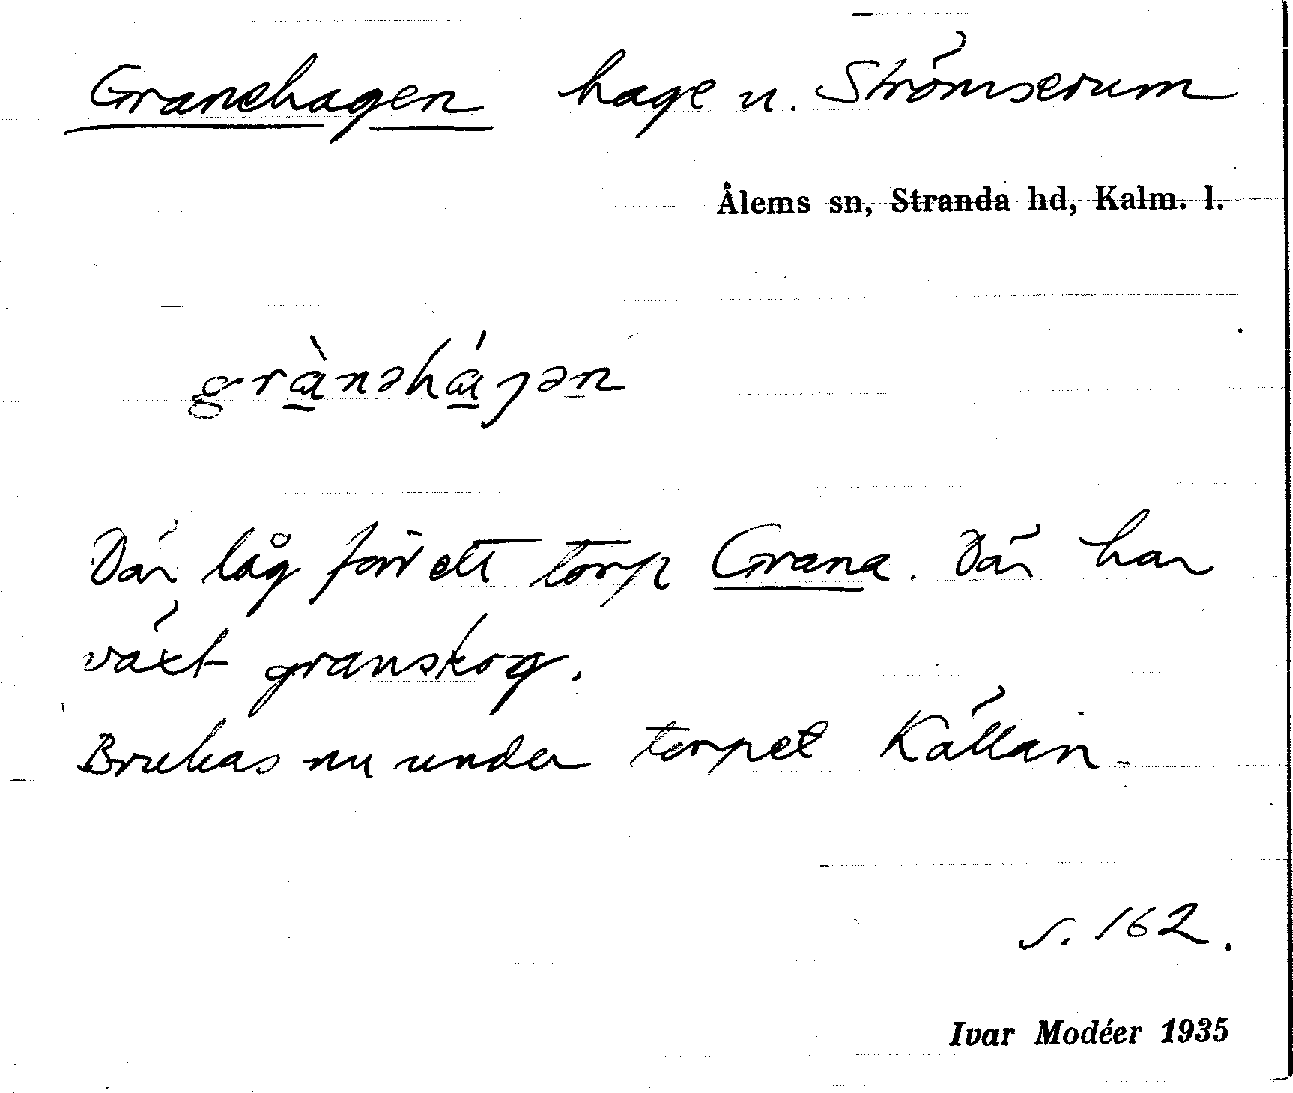 Granehagen hage u. Strömserum
Ålems sn, Stranda hd, Kalm. l.
grànəháɡən
Där låg förr ett torp Grana. Där har
växt granskog.
Brukas nu under torpet Källan.
s. 162.
Ivar Modéer 1935